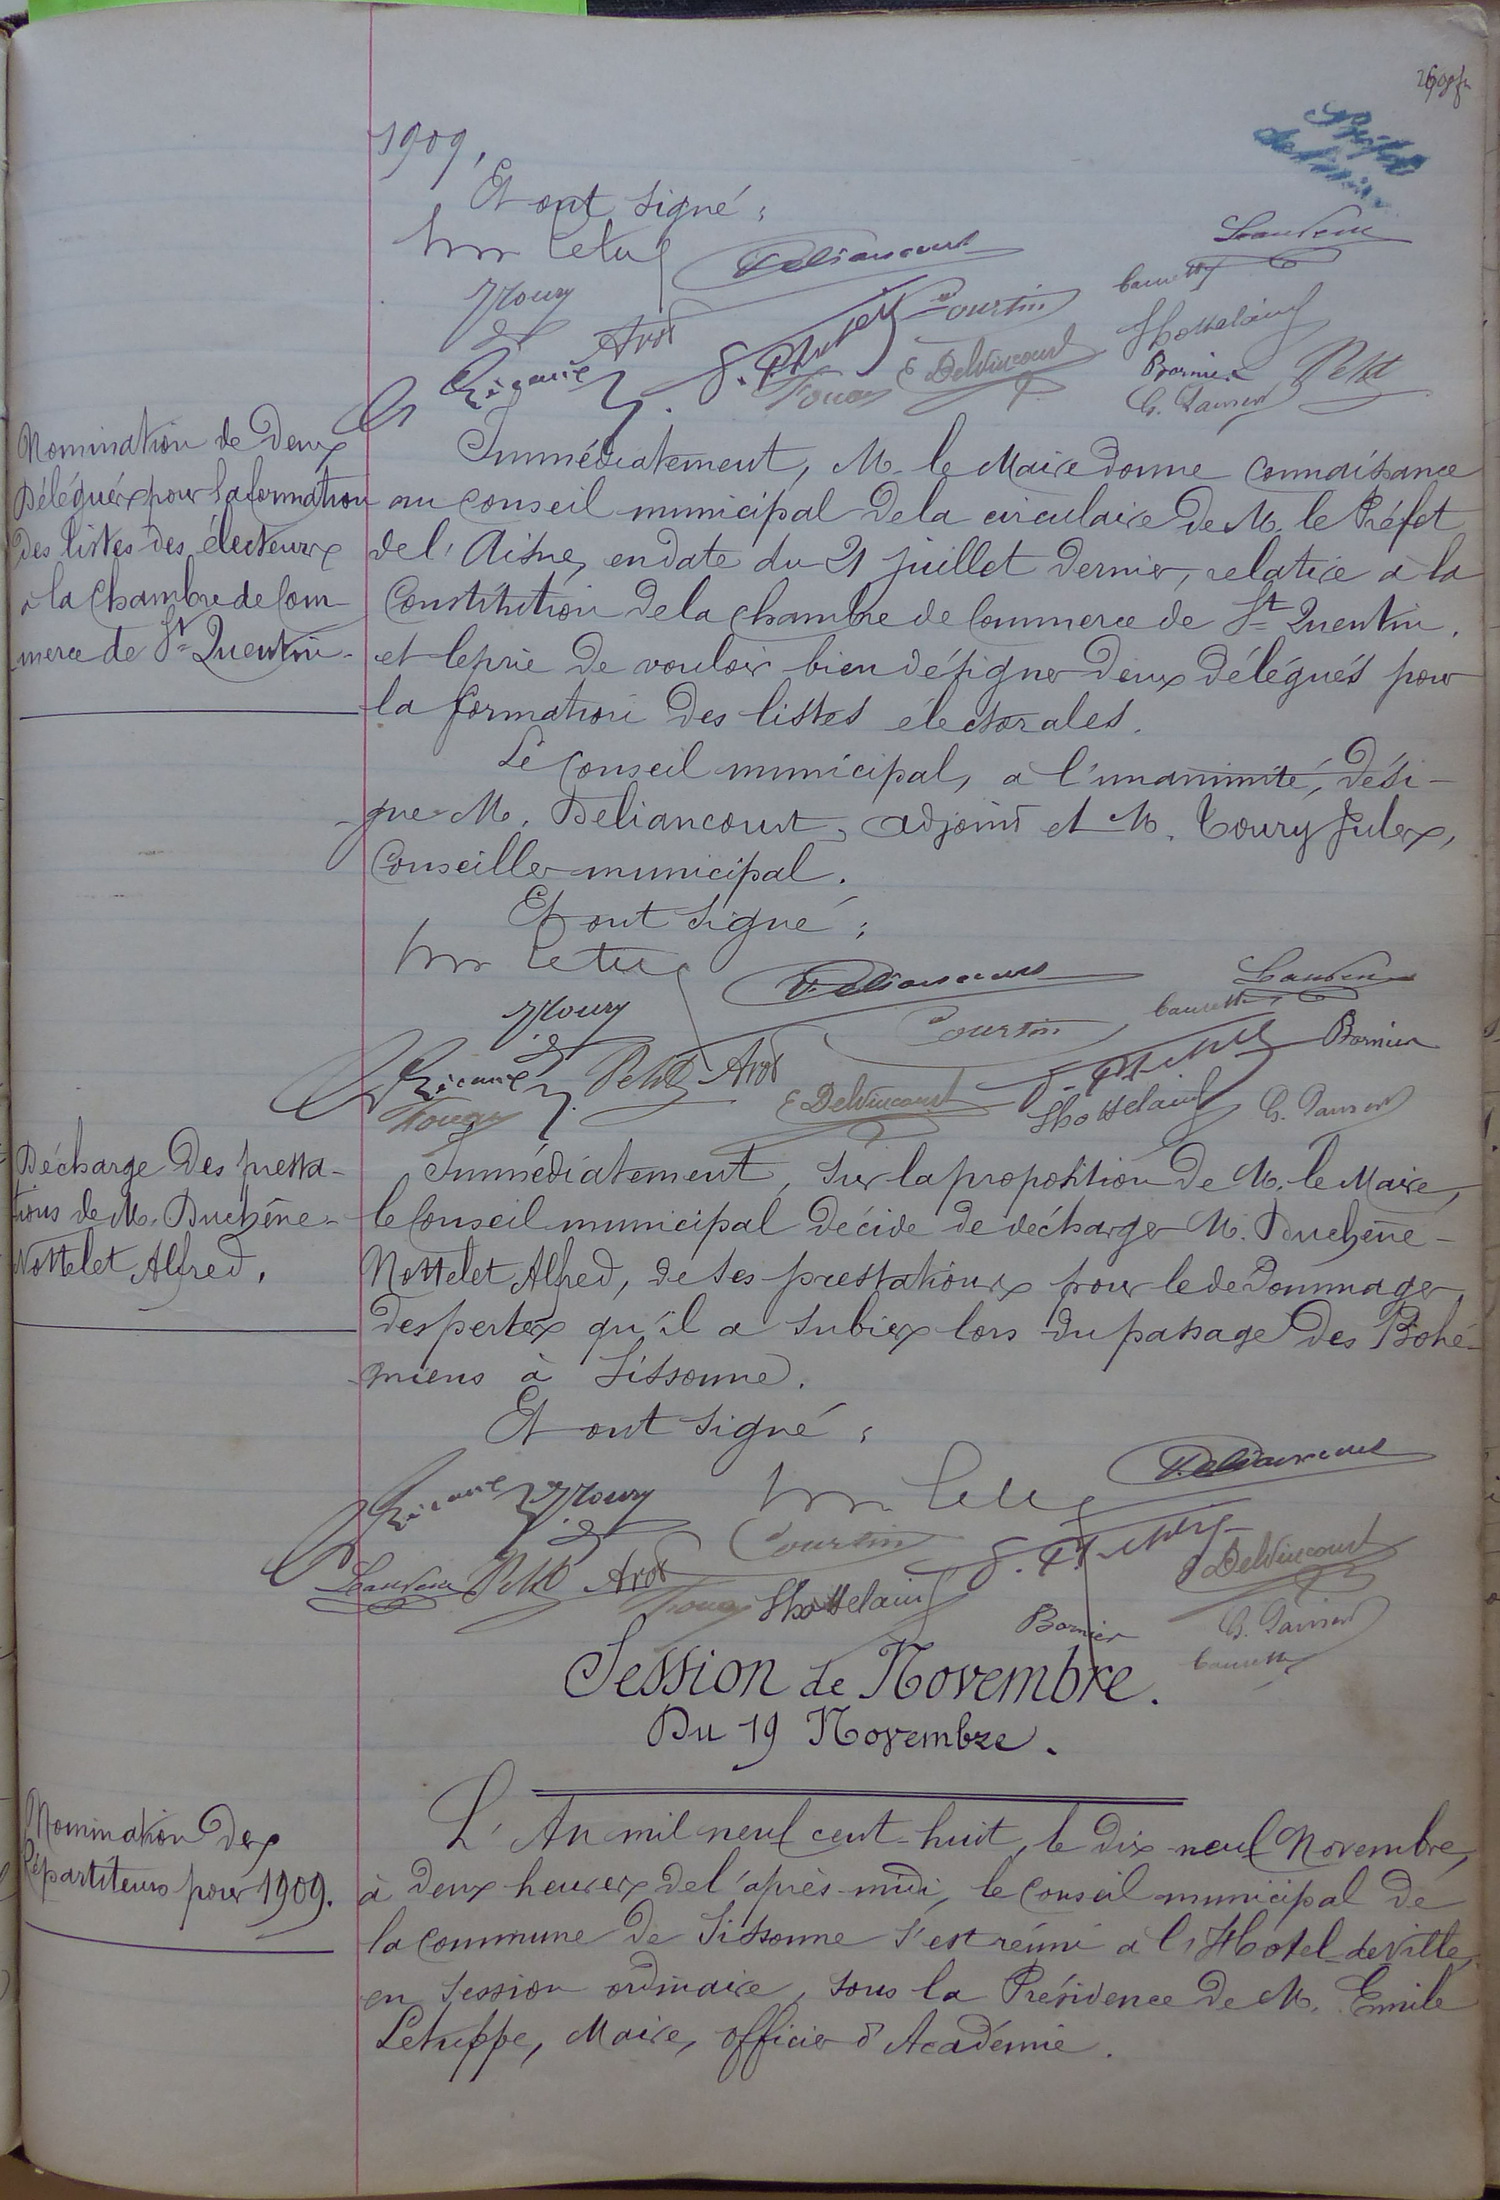 1909,
Et ont signé :
Deliancourt
Toury
Arot
Courtin
Caurette
Hottelain
E Delvincourt
Bornier
Petit
Nomination de deux
Délégués pour la formation
des listes des électeurs
à la Chambre de Com-
merce de St Quentin.
Immédiatement, M. le Maire donne connaissance
au conseil municipal de la circulaire de M. le Préfet
de l'Aisne, en date du 21 juillet dernier, relative à la
Constitution de la chambre de Commerce de St Quentin,
et le prie de vouloir bien désigner deux délégués pour
la formation des listes électorales.
Le Conseil municipal, a l'unanimité, dési-
gne M. Deliancourt, adjoint et M. Toury Jules,
Conseiller municipal.
Et ont signé :
Deliancourt
Toury
Courtin
Caurette
Bornier
Petit
Arot
E Delvincourt
Hottelain
Décharge des presta-
tions de M. Duchêne-
Nottelet Alfred.
Immédiatement, sur la proposition de M. le Maire,
le Conseil municipal décide de décharger M. Duchêne-
Nottelet Alfred, de ses prestations pour le dedommager
des pertes qu'il a subies lors du passage des Bohé-
miens à Sissonne.
Et ont signé :
Toury
Deliancourt
Courtin
Delvincourt
Petit
Arot
Hottelain
Bornier
Caurette
Session de Novembre.
Du 19 Novembre.
Nomination des
Répartiteurs pour 1909.
L'An mil neuf cent huit, le dix neuf Novembre,
à deux heures de l'après-midi, le Conseil municipal de
la commune de Sissonne s'est réuni à l'Hotel de Ville,
en session ordinaire, sous la Présidence de M. Emile
Letuppe, Maire, officier d'Académie.